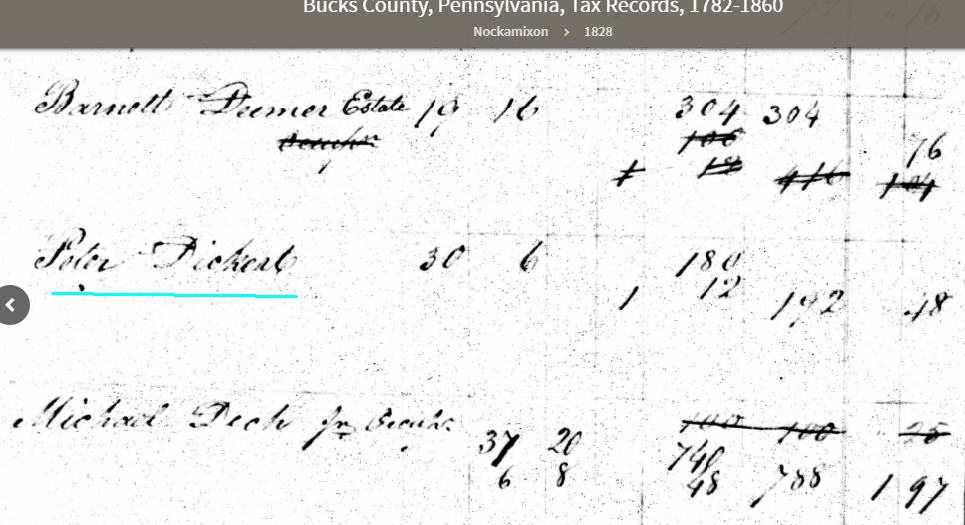 Bucks County, Pennsylvania, Tax Records, 1782-1860
Nockamixon > 1828
Barnett Deemer Estate 19 16 304 304
106 76
1 12 416 104
Peter Dickert 30 6 180
1 12 192 48
Michael Dech Jr 100 100 25
37 20 740
6 8 48 788 1 97